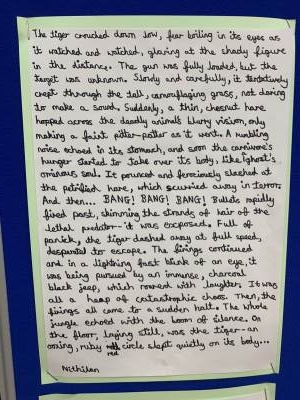 The tiger crouched down low, fear boiling in its eyes as
it watched and watched, glaring at the shady figure
in the distance. The gun was fully loaded, but the
target was unknown. Slowly and carefully, it tentatively
crept through the tall, camouflaging grass, not daring
to make a sound. Suddenly, a thin, chestnut hare
hopped across the deadly animals blurry vision, only
making a faint pitter-patter as it went. A rumbling
noise echoed in its stomach, and soon the carnivore's
hunger started to take over its body, like a ghost's
ominous soul. It pounced and ferociously slashed at
the petrified hare, which scurried away in terror.
And then... BANG! BANG! BANG! Bullets rapidly
fired past, skimming the strands of hair of the
lethal predator- it was exposed. Full of
panick, the tiger dashed away at full speed,
desperate to escape. The firings continued
and in a lightning fast blink of an eye, it
was being pursued by an immense, charcoal
black jeep, which roared with laughter. It was
all a heap of catastrophic chaos. Then, the
firings all came to a sudden halt. The whole
jungle echoed with the boom of silence. On
the floor, laying still, was the tiger- an
oozing, ruby red circle slept quietly on its body...
Nithilan